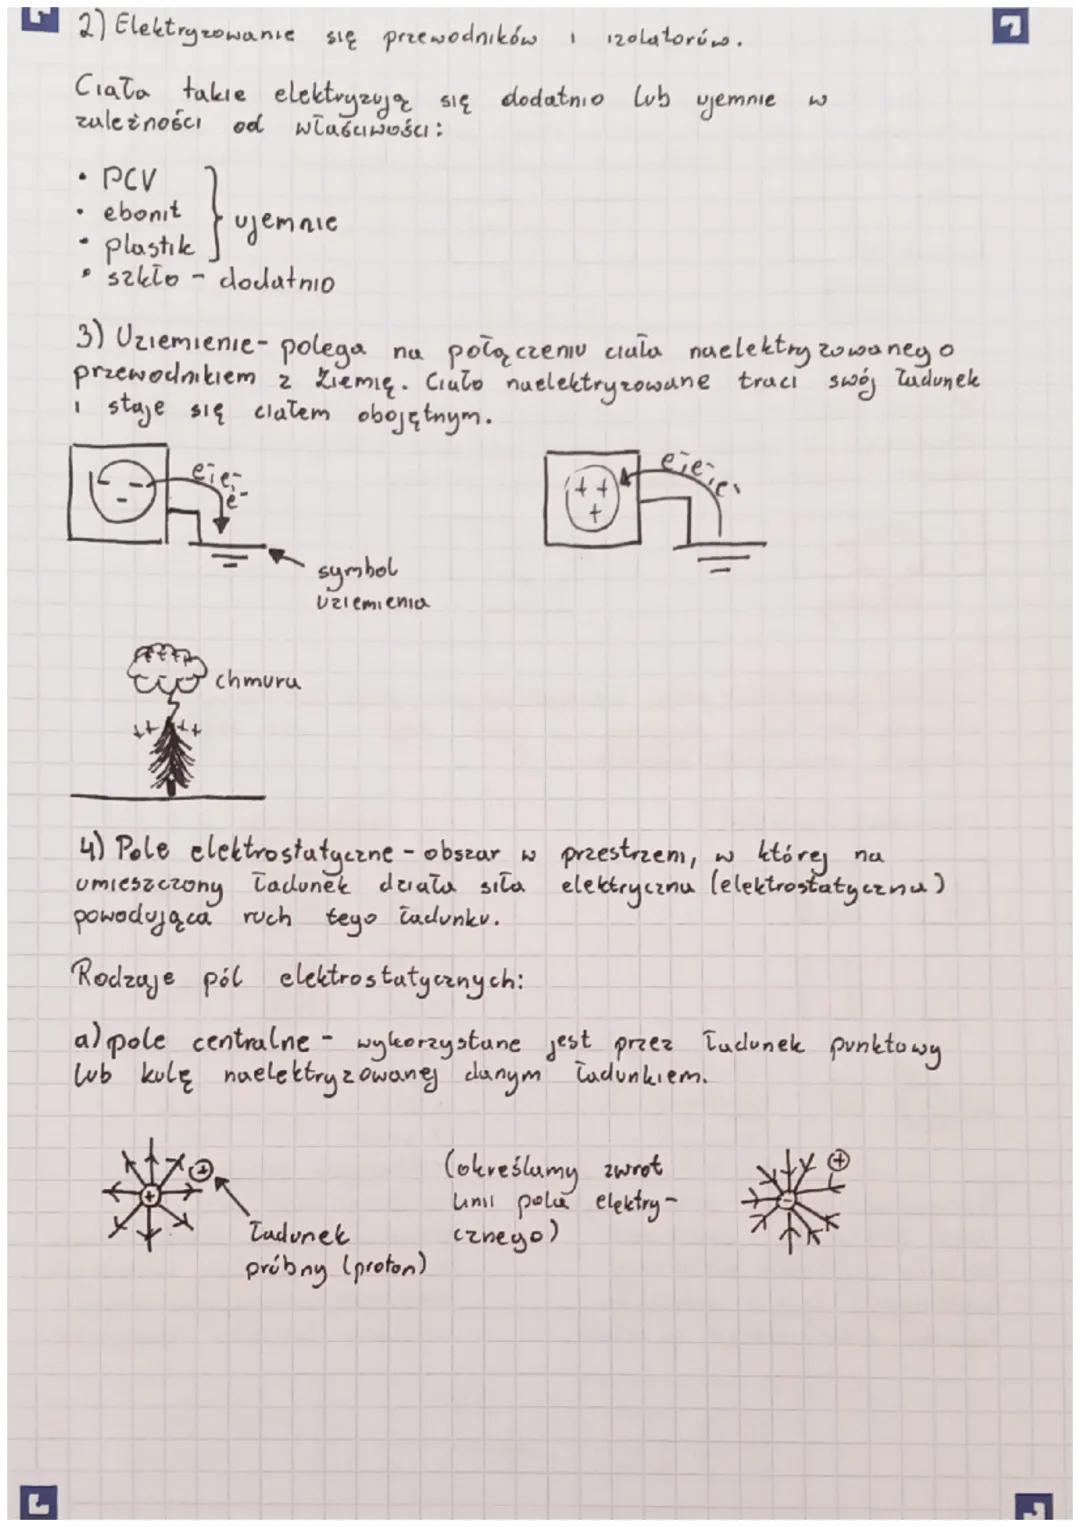 2) Elektryzowanie się przewodników i izolatorów.
Ciała takie elektryzują się dodatnio lub ujemnie w
zależności od właściwości:
• PCV
• ebonit
• plastik
ujemnie
• szkło - dodatnio
3) Uziemienie - polega na połączeniu ciała naelektryzowanego
przewodnikiem z Ziemią. Ciało naelektryzowane traci swój ładunek
i staje się ciałem obojętnym.
- - -
e⁻, e⁻, e⁻
+ + +
e⁻, e⁻, e⁻
symbol
uziemienia
++++
chmura
- - -
++ ++
4) Pole elektrostatyczne - obszar w przestrzeni, w której na
umieszczony ładunek działa siła elektryczna (elektrostatyczna)
powodująca ruch tego ładunku.
Rodzaje pól elektrostatycznych:
a) pole centralne - wykorzystane jest przez ładunek punktowy
lub kulę naelektryzowanej danym ładunkiem.
+
+
ładunek
próbny (proton)
(określamy zwrot
linii pola elektry-
cznego)
-
+